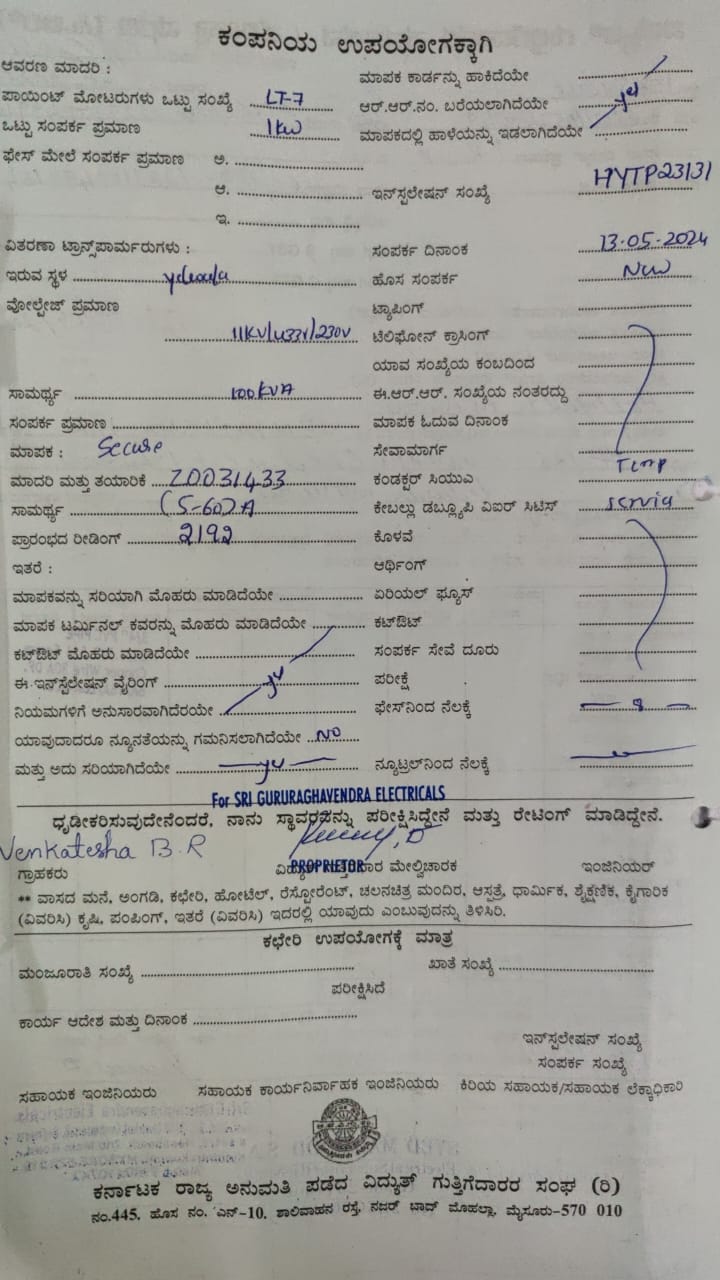 ಕಂಪನಿಯ ಉಪಯೋಗಕ್ಕಾಗಿ
ಆವರಣ ಮಾದರಿ :
ಮಾಪಕ ಕಾರ್ಡನ್ನು ಹಾಕಿದೆಯೇ
ಪಾಯಿಂಟ್ ಮೋಟರುಗಳು ಒಟ್ಟು ಸಂಖ್ಯೆ LT-7
ಆರ್.ಆರ್.ನಂ. ಬರೆಯಲಾಗಿದೆಯೇ yes
ಒಟ್ಟು ಸಂಪರ್ಕ ಪ್ರಮಾಣ 1KW
ಮಾಪಕದಲ್ಲಿ ಹಾಳೆಯನ್ನು ಇಡಲಾಗಿದೆಯೇ
ಫೇಸ್ ಮೇಲೆ ಸಂಪರ್ಕ ಪ್ರಮಾಣ ಅ.
ಆ.
ಇನ್‌ಸ್ಟಲೇಷನ್ ಸಂಖ್ಯೆ HYTP23131
ಇ.
ವಿತರಣಾ ಟ್ರಾನ್ಸ್‌ಪಾರ್ಮರುಗಳು :
ಸಂಪರ್ಕ ದಿನಾಂಕ 13.05.2024
ಇರುವ ಸ್ಥಳ
ಹೊಸ ಸಂಪರ್ಕ New
ವೋಲ್ಟೇಜ್ ಪ್ರಮಾಣ
ಟ್ಯಾಪಿಂಗ್
11KV/433V/230V
ಟೆಲಿಫೋನ್ ಕ್ರಾಸಿಂಗ್
ಯಾವ ಸಂಖ್ಯೆಯ ಕಂಬದಿಂದ
ಸಾಮರ್ಥ್ಯ 100KVA
ಈ.ಆರ್.ಆರ್. ಸಂಖ್ಯೆಯ ನಂತರದ್ದು
ಸಂಪರ್ಕ ಪ್ರಮಾಣ
ಮಾಪಕ ಓದುವ ದಿನಾಂಕ
ಮಾಪಕ : Secure
ಸೇವಾಮಾರ್ಗ
ಮಾದರಿ ಮತ್ತು ತಯಾರಿಕೆ Z0031433
ಕಂಡಕ್ಟರ್ ಸಿಯುಎ Temp
ಸಾಮರ್ಥ್ಯ (5-60)A
ಕೇಬಲ್ಲು ಡಬ್ಲ್ಯೂಪಿ ವಿಐರ್ ಸಿಟಿಸ್ service
ಪ್ರಾರಂಭದ ರೀಡಿಂಗ್ 2192
ಕೊಳವೆ
ಇತರೆ :
ಆರ್ಥಿಂಗ್
ಮಾಪಕವನ್ನು ಸರಿಯಾಗಿ ಮೊಹರು ಮಾಡಿದೆಯೇ
ಏರಿಯಲ್ ಫ್ಯೂಸ್
ಮಾಪಕ ಟರ್ಮಿನಲ್ ಕವರನ್ನು ಮೊಹರು ಮಾಡಿದೆಯೇ
ಕಟ್‌ಔಟ್
ಕಟ್‌ಔಟ್ ಮೊಹರು ಮಾಡಿದೆಯೇ
ಸಂಪರ್ಕ ಸೇವೆ ದೂರು
ಈ ಇನ್‌ಸ್ಟಲೇಷನ್ ವೈರಿಂಗ್ yes
ಪರೀಕ್ಷೆ
ನಿಯಮಗಳಿಗೆ ಅನುಸಾರವಾಗಿದೆರಯೇ
ಫೇಸ್‌ನಿಂದ ನೆಲಕ್ಕೆ
ಯಾವುದಾದರೂ ನ್ಯೂನತೆಯನ್ನು ಗಮನಿಸಲಾಗಿದೆಯೇ NO
ಮತ್ತು ಅದು ಸರಿಯಾಗಿದೆಯೇ yes
ನ್ಯೂಟ್ರಲ್‌ನಿಂದ ನೆಲಕ್ಕೆ
For SRI GURURAGHAVENDRA ELECTRICALS
ಧೃಡೀಕರಿಸುವುದೇನೆಂದರೆ, ನಾನು ಸ್ಥಾವರವನ್ನು ಪರೀಕ್ಷಿಸಿದ್ದೇನೆ ಮತ್ತು ರೇಟಿಂಗ್ ಮಾಡಿದ್ದೇನೆ.
Venkatesha B.R
PROPRIETOR
ಗ್ರಾಹಕರು ಮೇಲ್ವಿಚಾರಕ ಇಂಜಿನಿಯರ್
** ವಾಸದ ಮನೆ, ಅಂಗಡಿ, ಕಛೇರಿ, ಹೋಟೆಲ್, ರೆಸ್ಟೋರೆಂಟ್, ಚಲನಚಿತ್ರ ಮಂದಿರ, ಆಸ್ಪತ್ರೆ, ಧಾರ್ಮಿಕ, ಶೈಕ್ಷಣಿಕ, ಕೈಗಾರಿಕ
(ವಿವರಿಸಿ) ಕೃಷಿ, ಪಂಪಿಂಗ್, ಇತರೆ (ವಿವರಿಸಿ) ಇದರಲ್ಲಿ ಯಾವುದು ಎಂಬುವುದನ್ನು ತಿಳಿಸಿರಿ.
ಕಛೇರಿ ಉಪಯೋಗಕ್ಕೆ ಮಾತ್ರ
ಮಂಜೂರಾತಿ ಸಂಖ್ಯೆ ಖಾತೆ ಸಂಖ್ಯೆ
ಪರೀಕ್ಷಿಸಿದೆ
ಕಾರ್ಯ ಆದೇಶ ಮತ್ತು ದಿನಾಂಕ
ಇನ್‌ಸ್ಟಲೇಷನ್ ಸಂಖ್ಯೆ
ಸಂಪರ್ಕ ಸಂಖ್ಯೆ
ಸಹಾಯಕ ಇಂಜಿನಿಯರು ಸಹಾಯಕ ಕಾರ್ಯನಿರ್ವಾಹಕ ಇಂಜಿನಿಯರು ಕಿರಿಯ ಸಹಾಯಕ/ಸಹಾಯಕ ಲೆಕ್ಕಾಧಿಕಾರಿ
ಕರ್ನಾಟಕ ರಾಜ್ಯ ಅನುಮತಿ ಪಡೆದ ವಿದ್ಯುತ್ ಗುತ್ತಿಗೆದಾರರ ಸಂಘ (ರಿ)
ನಂ.445, ಹೊಸ ನಂ. ಎನ್-10, ಶಾಲಿವಾಹನ ರಸ್ತೆ, ನಜರ್ ಬಾದ್ ಮೊಹಲ್ಲಾ, ಮೈಸೂರು-570 010